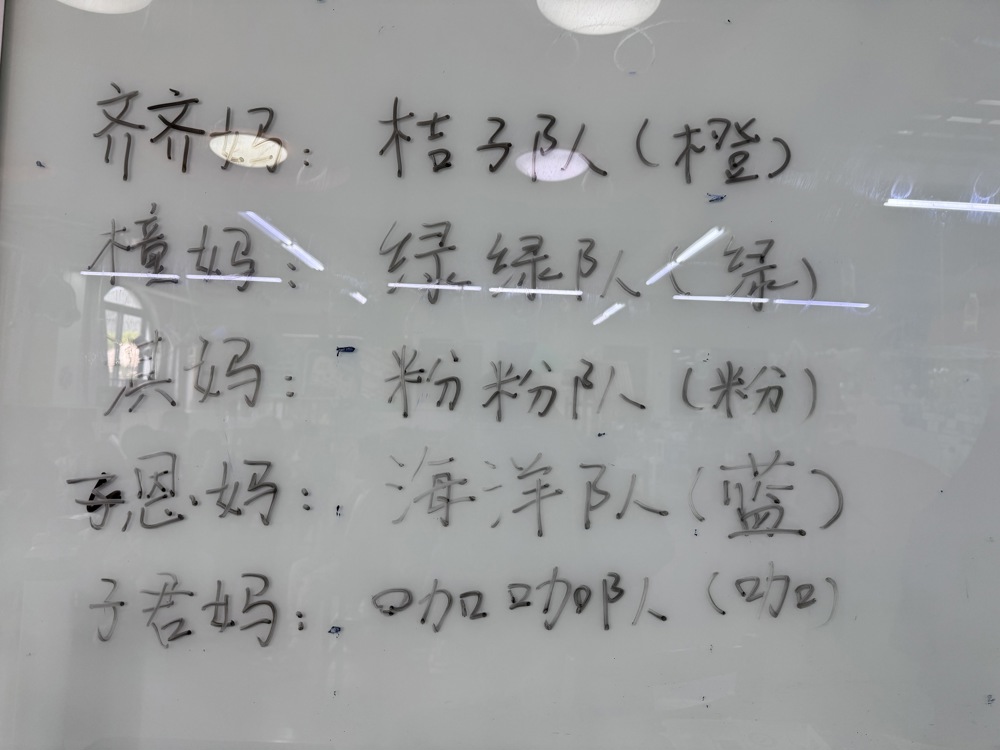 齐齐妈：桔子队（橙）
橦妈：绿绿队（绿）
淇妈：粉粉队（粉）
予恩妈：海洋队（蓝）
子君妈：咖咖队（咖）